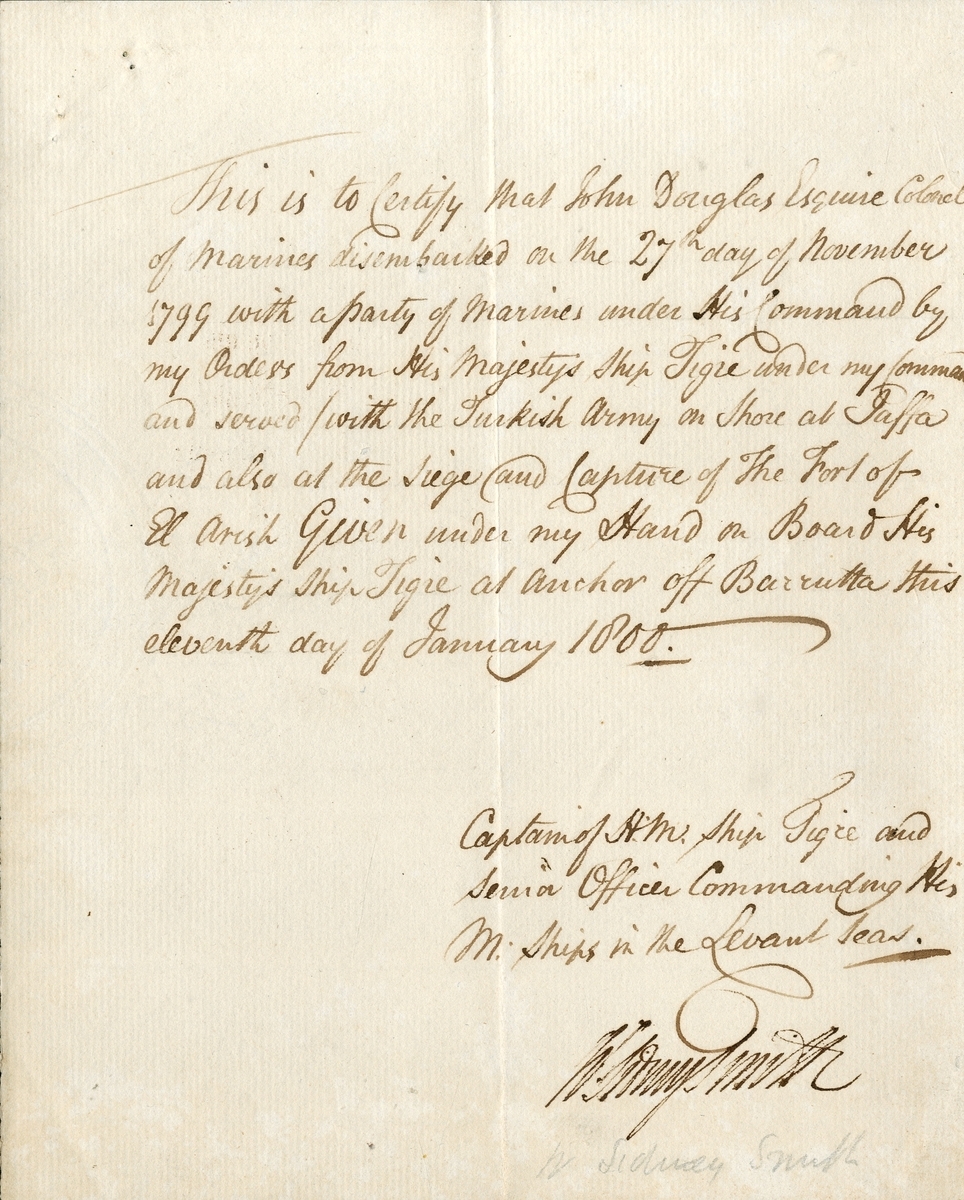 This is to Certify that John Douglas Esquire Colonel
of Marines disembarked on the 27th day of November
1799 with a party of Marines under His Command by
my Orders from His Majestys Ship Tigre under my Comman
and served with the Turkish Army on Shore at Jaffa
and also at the Siege and Capture of The Fort of
El Arish Given under my Hand on Board His
Majestys Ship Tigre at Anchor off Barrutta this
eleventh day of January 1800.
Captain of H. M. Ship Tigre and
Senior Officer Commanding His
M. Ships in the Levant Seas.
W Sidney Smith
W Sidney Smith